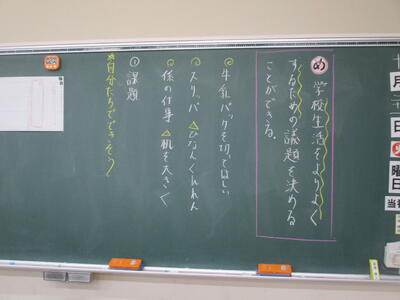 め 学校生活をよりよく
するための議題を決める
ことができる。
牛乳パックを切ってほしい
スリッパ △ひなんくんれん
係の仕事 △机を大きく
① 課題
※自分たちでできそう!
月
日
曜
日
当番